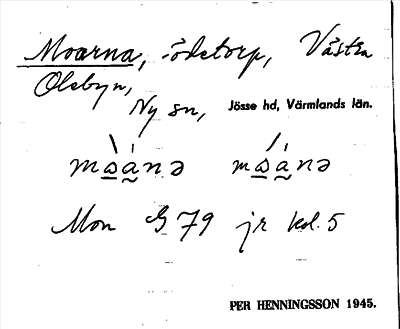 Moarna, ödetorp, Västra
Olebyn,
Ny sn, Jösse hd, Värmlands län.
mωánə mωánə
Mon G 79 jr kol. 5
PER HENNINGSSON 1945.